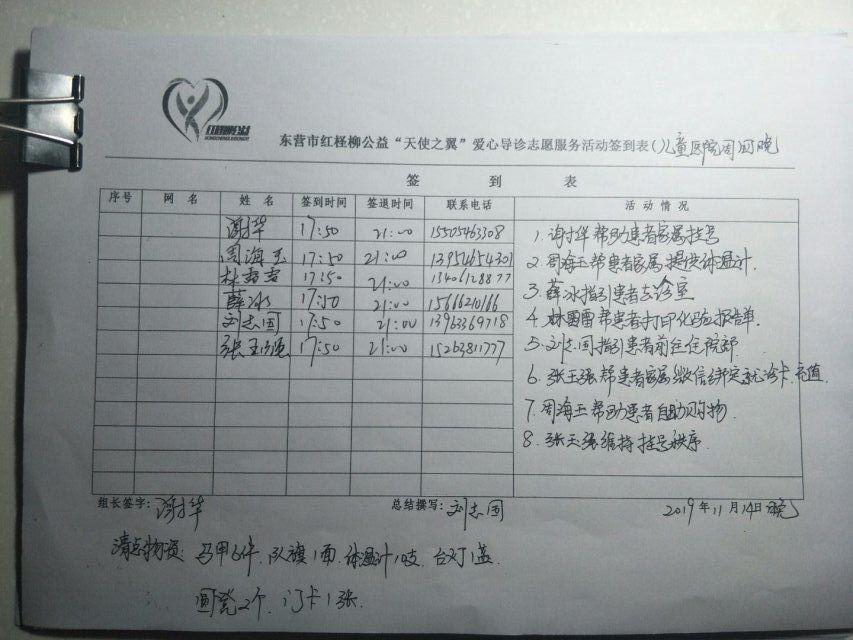 东营市红柽柳公益“天使之翼”爱心导诊志愿服务活动签到表(儿童医院周四晚
签 到 表
序号 网 名 姓 名 签到时间 签退时间 联系电话 活 动 情 况
谢华 17:50 21:00 15505463308
周海玉 17:50 21:00 13954654301
林雷雷 17:50 21:00 13406128877
薛冰 17:50 21:00 15666210166
刘志国 17:50 21:00 13963369718
张玉强 17:50 21:00 15263811777
1. 谢华帮助患者家属挂号
2. 周海玉帮患者家属提供体温计.
3. 薛冰指引患者去诊室
4. 林雷雷帮患者打印化验报告单.
5. 刘志国指引患者前往住院部.
6. 张玉强帮患者家属微信绑定就诊卡.充值.
7. 周海玉帮助患者自助购物.
8. 张玉强维持挂号秩序.
组长签字: 谢华 总结撰写: 刘志国 2019年11月14日晚
清点物资: 马甲6件. 队旗1面. 体温计1支. 台灯1盏.
圆凳2个. 门卡1张.